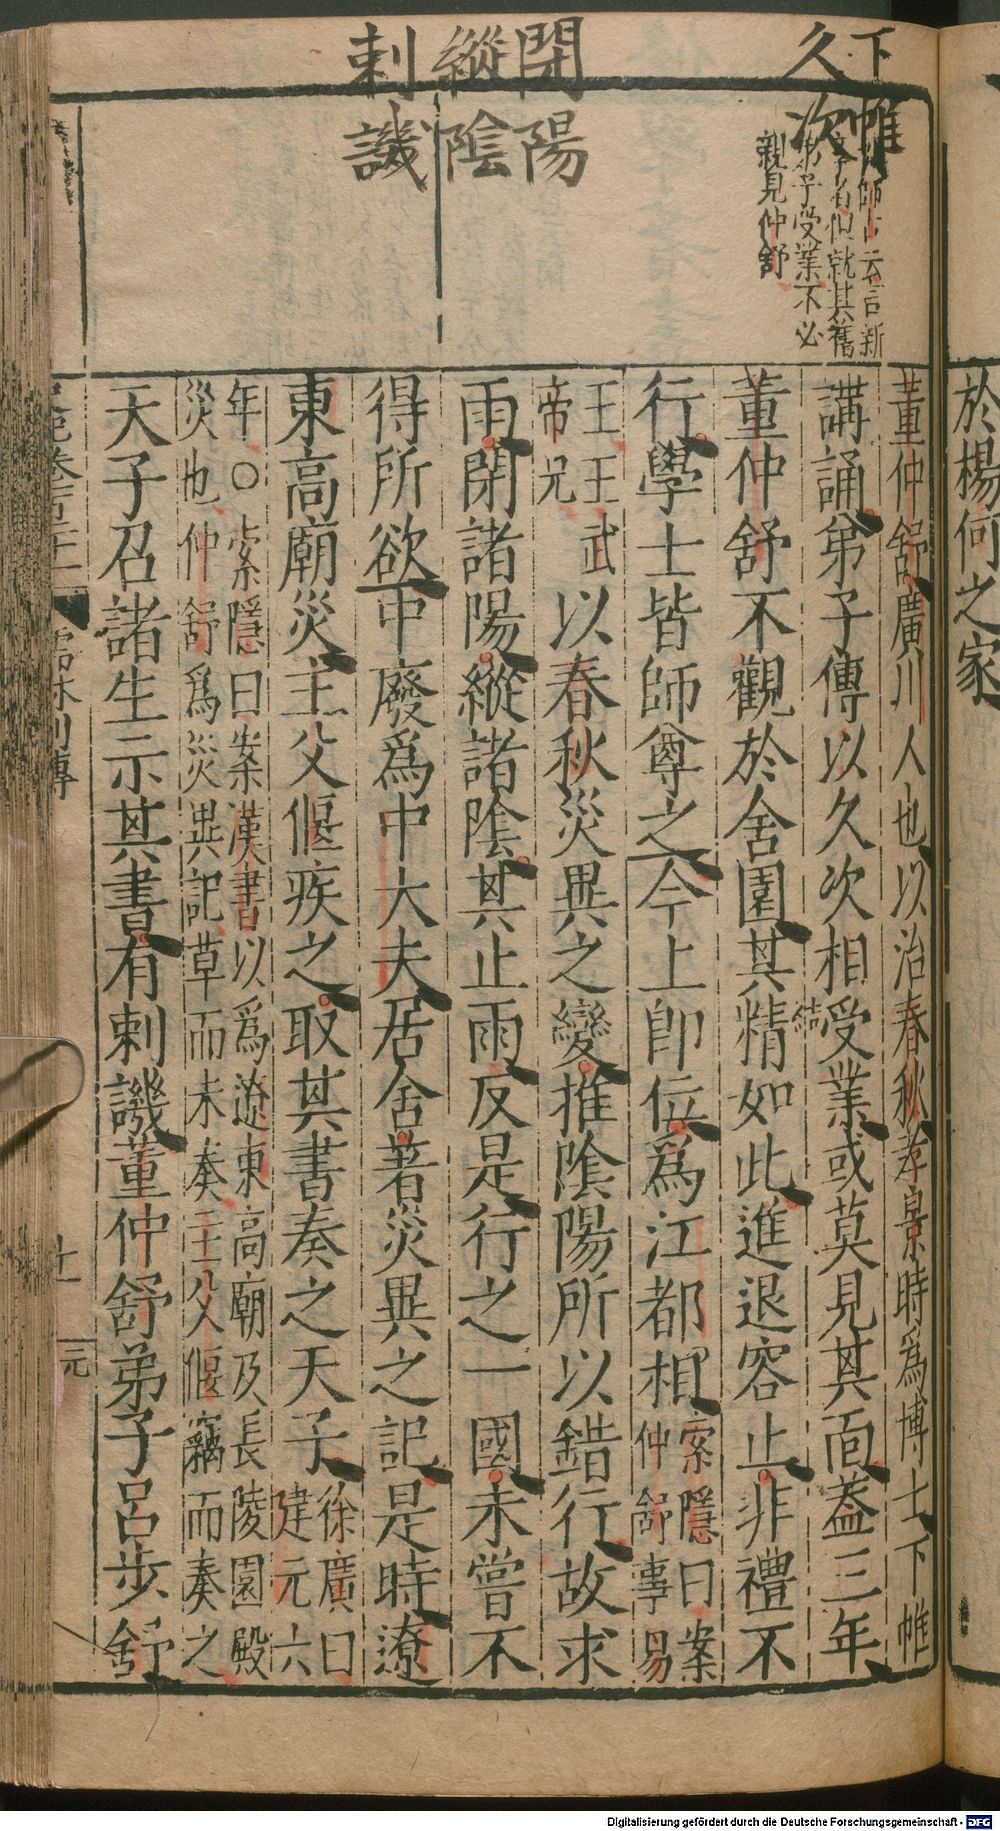 下帷
久次
師古云言新
弟子受業不必
親見仲舒
閉陽
縱陰
刺譏
於楊何之家
董仲舒廣川人也以治春秋孝景時爲博士下帷
講誦弟子傳以久次相受業或莫見其面蓋三年
董仲舒不觀於舍園其精如此進退容止非禮不
行學士皆師尊之今上即位爲江都相
案隱曰案
仲舒事易
王王武
帝兄
以春秋災異之變推陰陽所以錯行故求
雨閉諸陽縱諸陰其止雨反是行之一國未嘗不
得所欲中廢爲中大夫居舍著災異之記是時遼
東高廟災主父偃疾之取其書奏之天子
徐廣曰
建元六
年○索隱曰案漢書以爲遼東高廟及長陵園殿
災也仲舒爲災異記草而未奏主父偃竊而奏之
天子召諸生示其書有刺譏董仲舒弟子呂步舒
儒林列傳
十一
元
Digitalisierung gefördert durch die Deutsche Forschungsgemeinschaft - DFG